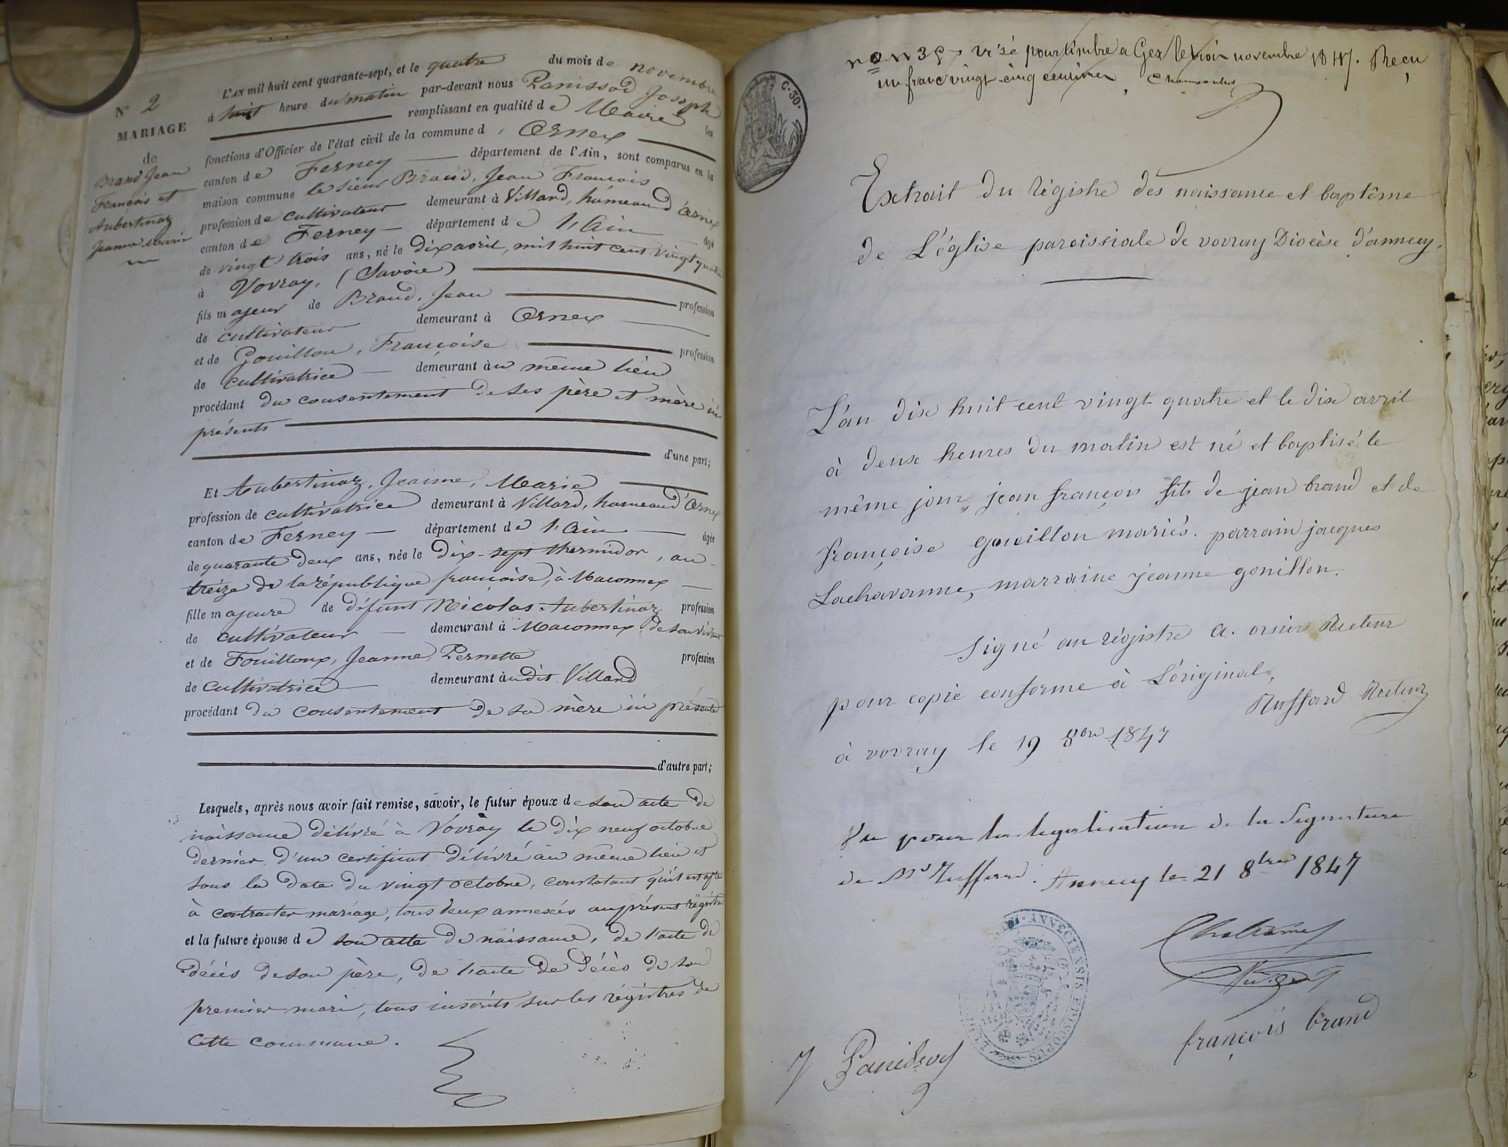 N° 2
MARIAGE
de
Brand Jean
François et
Aubertinaz
Jeanne Marie
L'AN mil huit cent quarante-sept, et le quatre du mois de novembre
à huit heure du matin par-devant nous Panissod Joseph
remplissant en qualité de Maire les
fonctions d'Officier de l'état civil de la commune d'Ornex
canton de Ferney département de l'Ain, sont comparus en la
maison commune le sieur Brand, Jean François
profession de cultivateur demeurant à Villard, hameau d'Ornex
canton de Ferney département de l'Ain âgé
de vingt trois ans, né le dix avril, mil huit cent vingt quatre
à Vovray, (Savoie)
fils majeur de Brand, Jean profession
de cultivateur demeurant à Ornex
et de Gouillon, Françoise profession
de cultivatrice demeurant au même lieu
procédant du consentement de ses père et mère ici
présents
d'une part;
Et Aubertinaz, Jeanne, Marie
profession de cultivatrice demeurant à Villard, hameau d'Ornex
canton de Ferney département de l'Ain âgée
de quarante deux ans, née le dix-sept thermidor, an
treize de la république française, à Maconnex
fille majeure de défunt Nicolas Aubertinaz profession
de cultivateur demeurant à Maconnex de son vivant
et de Fouilloux, Jeanne Pernette profession
de cultivatrice demeurant au dit Villard
procédant du consentement de sa mère ici présente
d'autre part;
Lesquels, après nous avoir fait remise, savoir, le futur époux de son acte de
naissance délivré à Vovray le dix neuf octobre
dernier, d'un certificat délivré au même lieu et
sous la date du vingt octobre, constatant qu'il est apte
à contracter mariage, tous deux annexés au présent régistre
et la future épouse de son acte de naissance, de l'acte de
décès de son père, de l'acte de décès de son
premier mari, tous inscrits sur les régistres de
cette commune.
C. 30.
n° 1135 visé pour timbre a Gex le trois novembre 1847. Reçu
un franc vingt cinq centimes
Extrait du régistre des naissance et baptême
de L'église paroissiale de vovray Diocèse d'annecy.
L'an dix huit cent vingt quatre et le dix avril
à deux heures du matin est né et baptisé le
même jour, jean françois fils de jean brand et de
françoise gouillon mariés. parrain jacques
Lachavanne, marraine jeanne gouillon.
Signé au régistre a. orsier Recteur
pour copie conforme à L'original,
Ruffard Recteur
à vovray le 19 8bre 1847
Vu pour la légalisation de la Signature
de Mr Ruffard. Annecy le 21 8bre 1847
françois brand
J Panissod